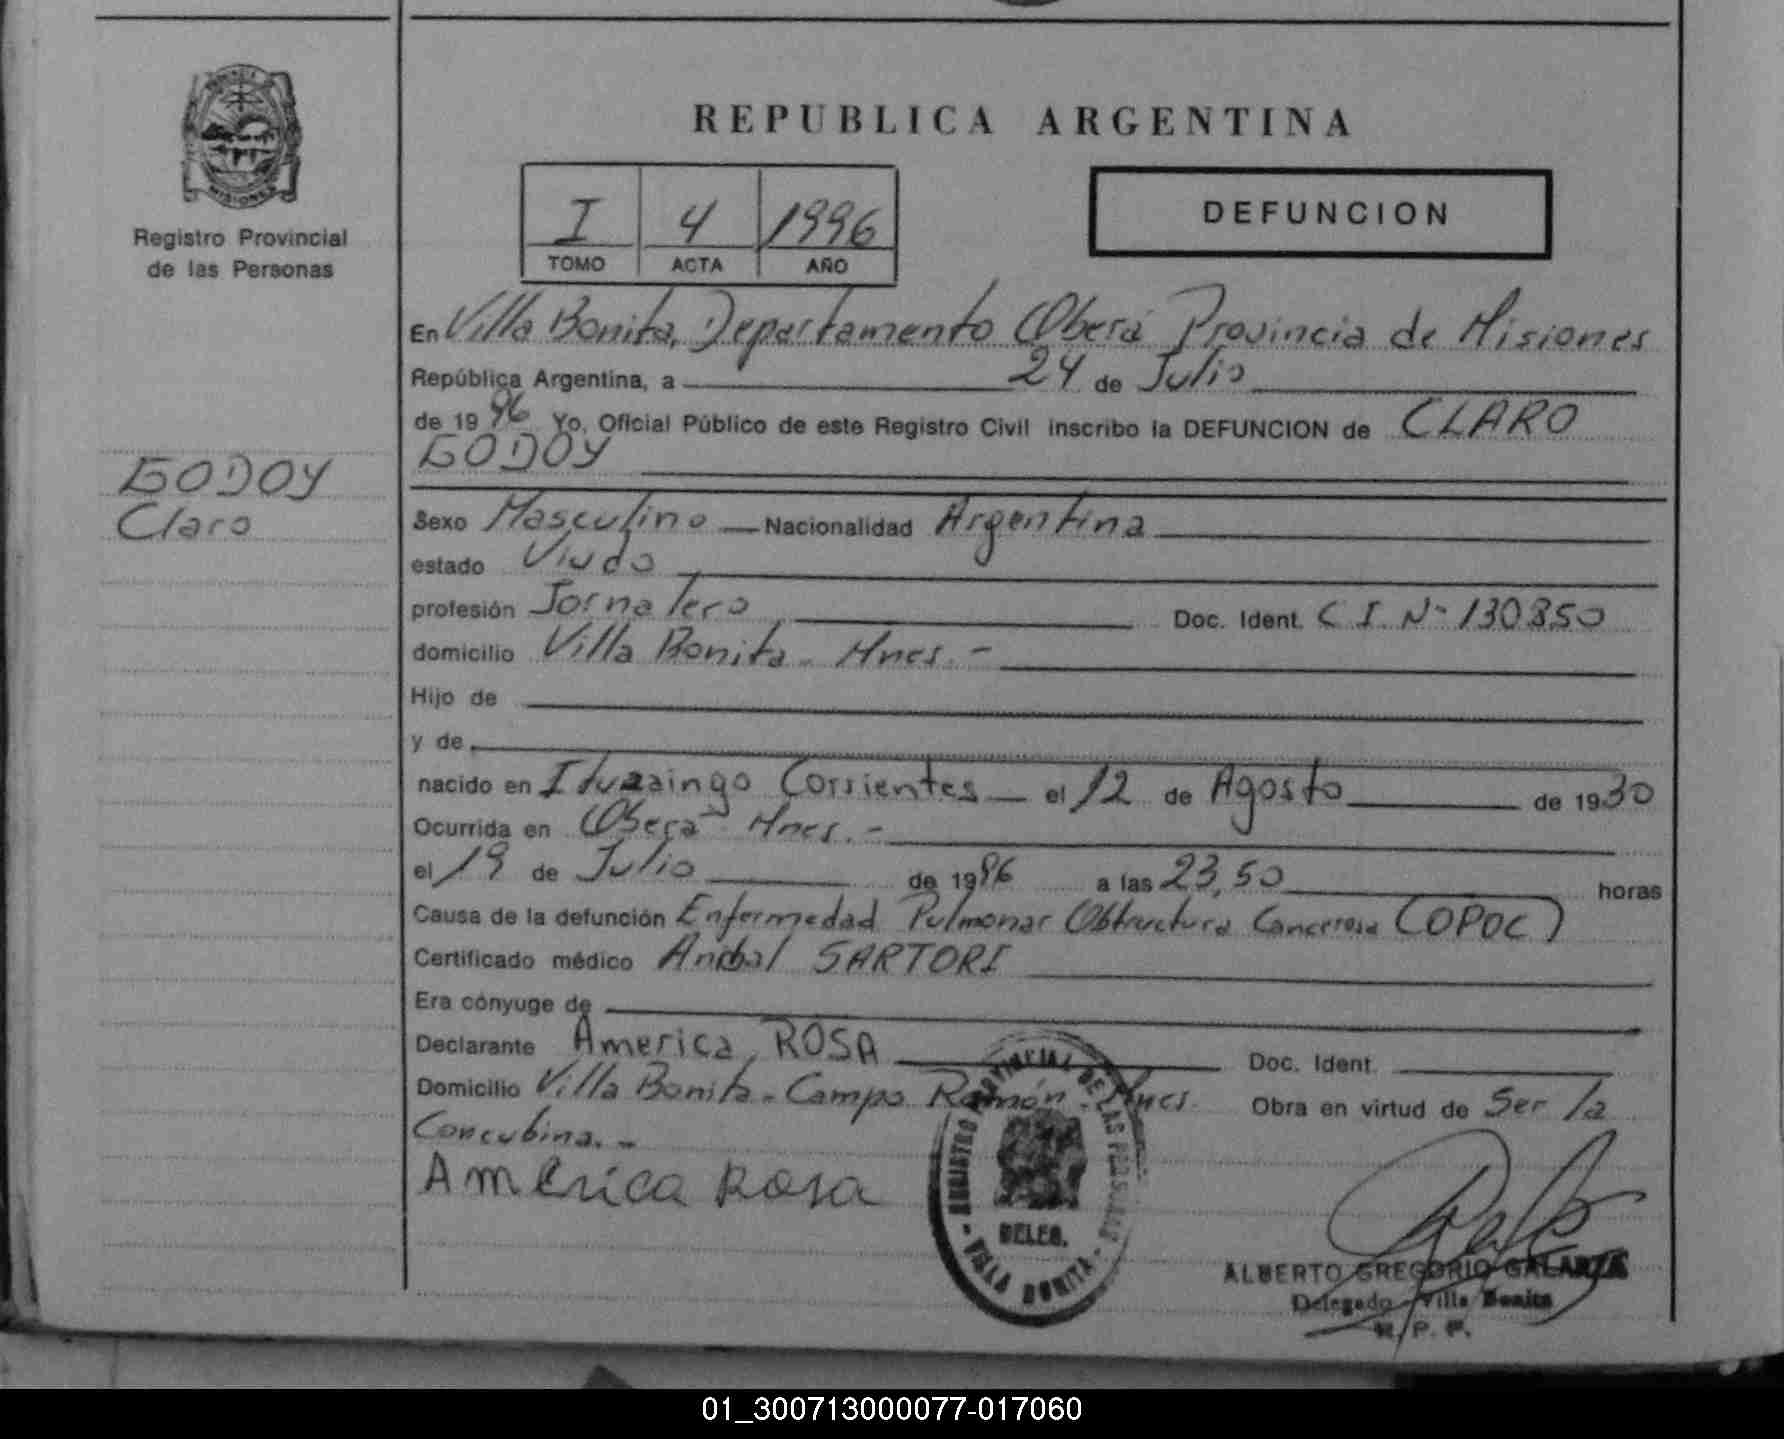 REPUBLICA ARGENTINA
MISIONES
Registro Provincial
de las Personas
I 4 1996
TOMO ACTA AÑO
DEFUNCION
En Villa Bonita, Departamento Oberá Provincia de Misiones
República Argentina, a 24 de Julio
de 1996 Yo, Oficial Público de este Registro Civil inscribo la DEFUNCION de CLARO
GODOY
GODOY
Claro
Sexo Masculino Nacionalidad Argentina
estado Viudo
profesión Jornalero Doc. Ident. C I Nº 130850
domicilio Villa Bonita - Mnes. -
Hijo de
y de
nacido en Ituzaingo Corrientes el 12 de Agosto de 1930
Ocurrida en Oberá Mnes. -
el 19 de Julio de 1996 a las 23,50 horas
Causa de la defunción Enfermedad Pulmonar Obtructura Cancerosa (OPOC)
Certificado médico Anibal SARTORI
Era cónyuge de
Declarante America, ROSA Doc. Ident.
Domicilio Villa Bonita - Campo Ramón - Mnes. Obra en virtud de Ser la
Concubina. -
America Rosa
REGISTRO PROVINCIAL DE LAS PERSONAS
DELEG.
- VILLA BONITA -
ALBERTO GREGORIO GALARZA
Delegado Villa Bonita
R. P. P.
01_300713000077-017060